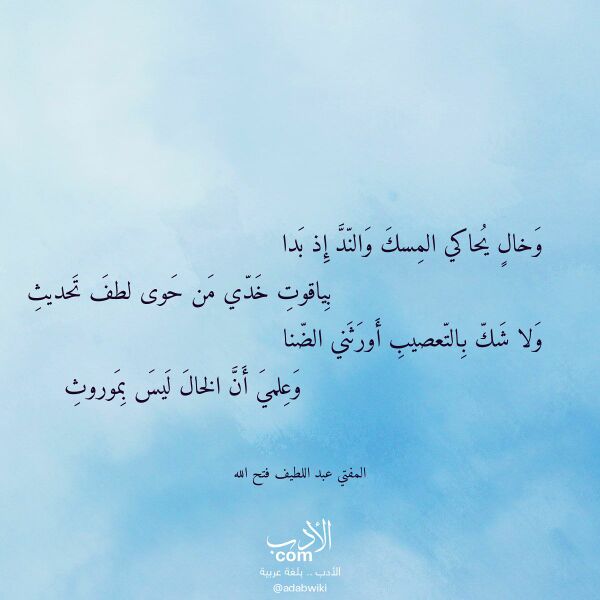 وَخالٍ يُحاكي المِسكَ وَالنّدَّ إِذ بَدا
بِياقوتِ خَدّي مَن حَوى لطفَ تَحديثِ
وَلا شَكّ بِالتّعصيبِ أَورَثَني الضّنا
وَعِلميَ أَنَّ الخالَ لَيسَ بِمَوروثِ
المفتي عبد اللطيف فتح الله
الأدب
com
الأدب .. بلغة عربية
@adabwiki